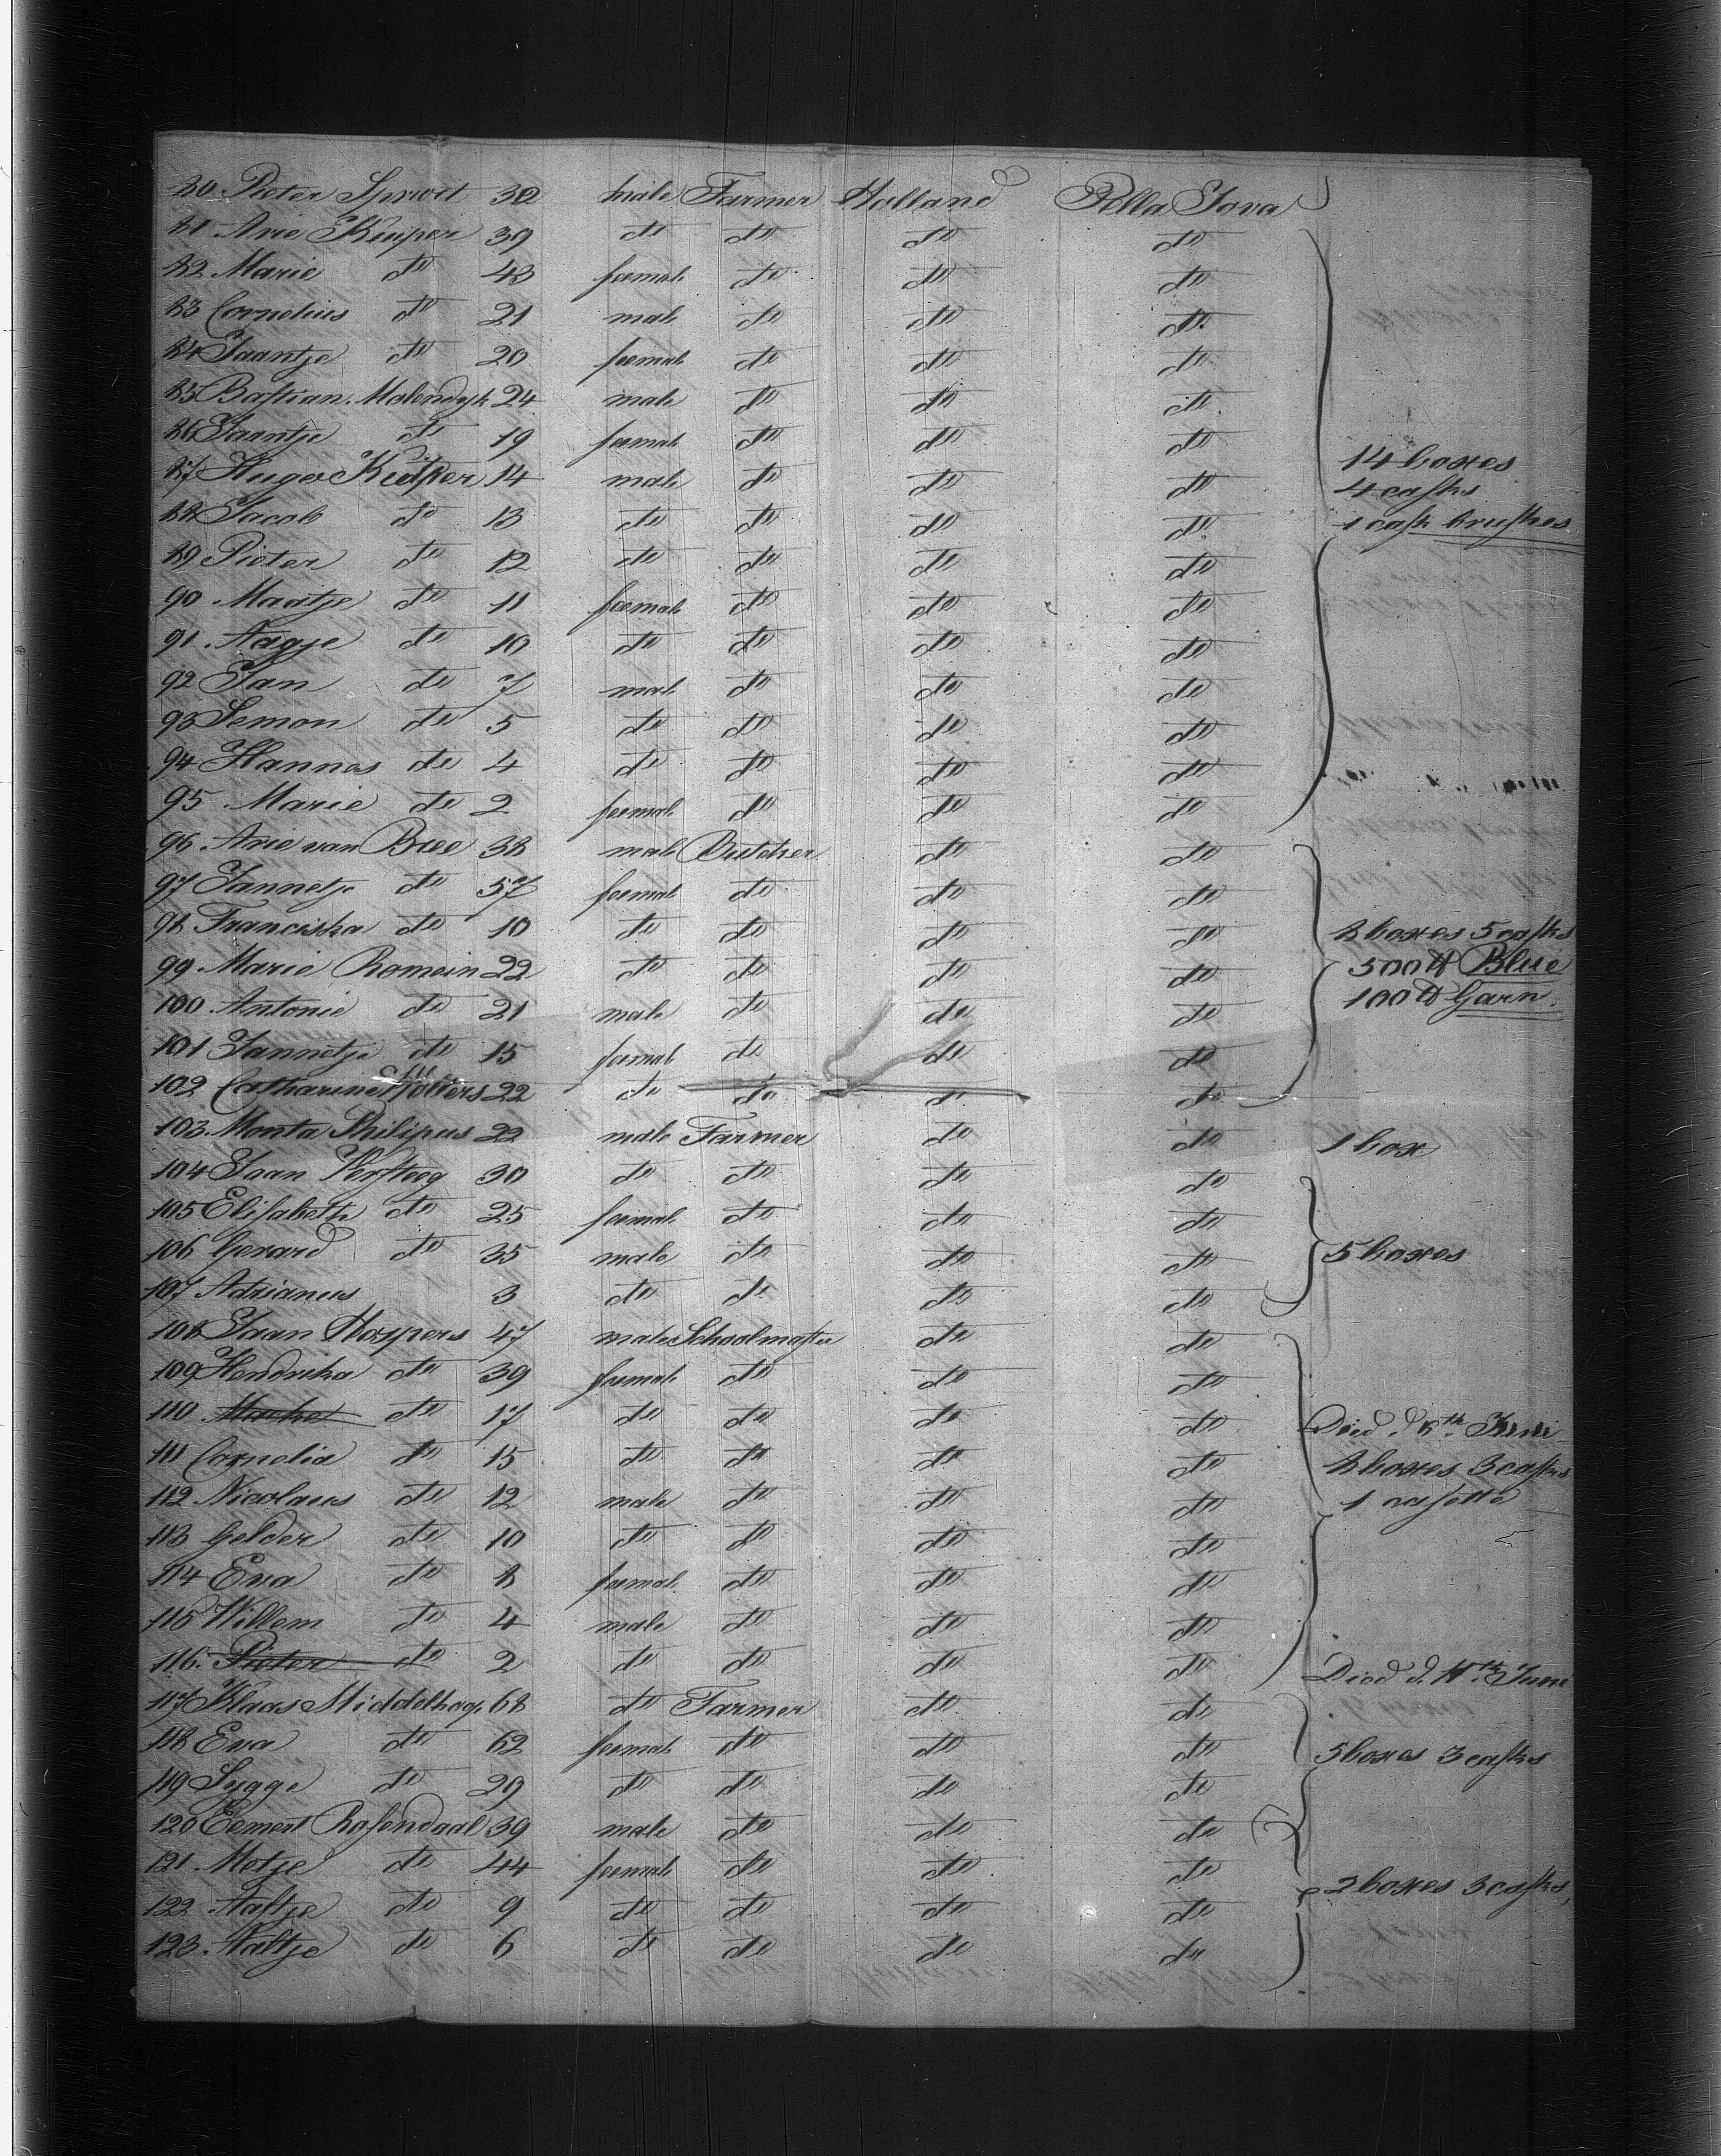 80 Pieter Sproit 30 male Farmer Holland Pella Iova
81 Arie Kuiper 39 do do do do
82 Marie do 43 femal do do do
83 Cornelius do 21 male do do do
84 Jaantje do 20 femal do do do
85 Bastian Molendyk 24 male do do do
86 Jaantje do 19 femal do do do
87 Hugo Kuiper 14 male do do do 14 boxes
4 casks
88 Jacob do 13 do do do do 1 cask brushes
89 Pieter do 12 do do do do
90 Maatje do 11 femal do do do
91 Aagje do 10 do do do do
92 Jan do 7 male do do do
93 Semon do 5 do do do do
94 Hannes do 4 do do do do
95 Marie do 2 femal do do do
96 Arie van Bree 38 male Butcher do do
97 Jannetje do 57 femal do do do
98 Franciska do 10 do do do do 8 boxes 5 casks
99 Marie Romein 22 do do do do 500 ℔ Blue
100 Antonie do 21 male do do do 100 ℔ Garn
101 Jannetje do 15 femal do do do
102 Catharine 22 do do do do
103 Monta Philipus 22 male Farmer do do 1 box
104 Jaan Versteeg 30 do do do do
105 Elisabeth do 25 femal do do do
106 Gerard do 35 male do do do 5 boxes
107 Adrianus 3 do do do do
108 Jaan Hospers 47 male Schoolmaster do do
109 Hendrika do 39 femal do do do
110 do 17 do do do do Died d. 8th Juni
111 Cornelia do 15 do do do do 8 boxes 3 casks
112 Nicolaus do 12 male do do do 1 casette
113 Gelder do 10 do do do do
114 Eva do 8 femal do do do
115 Willem do 4 male do do do
116 Pieter do 2 do do do do Died d. Juni
117 Klaas Middelhag 68 do Farmer do do
118 Eva do 62 femal do do do 5 boxes 3 casks
119 Sygge do 29 do do do do
120 Eemert Rosendaal 39 male do do do
121 Metje do 44 femal do do do 2 boxes 3 casks
122 Aaltje do 9 do do do do
123 Naltje do 6 do do do do